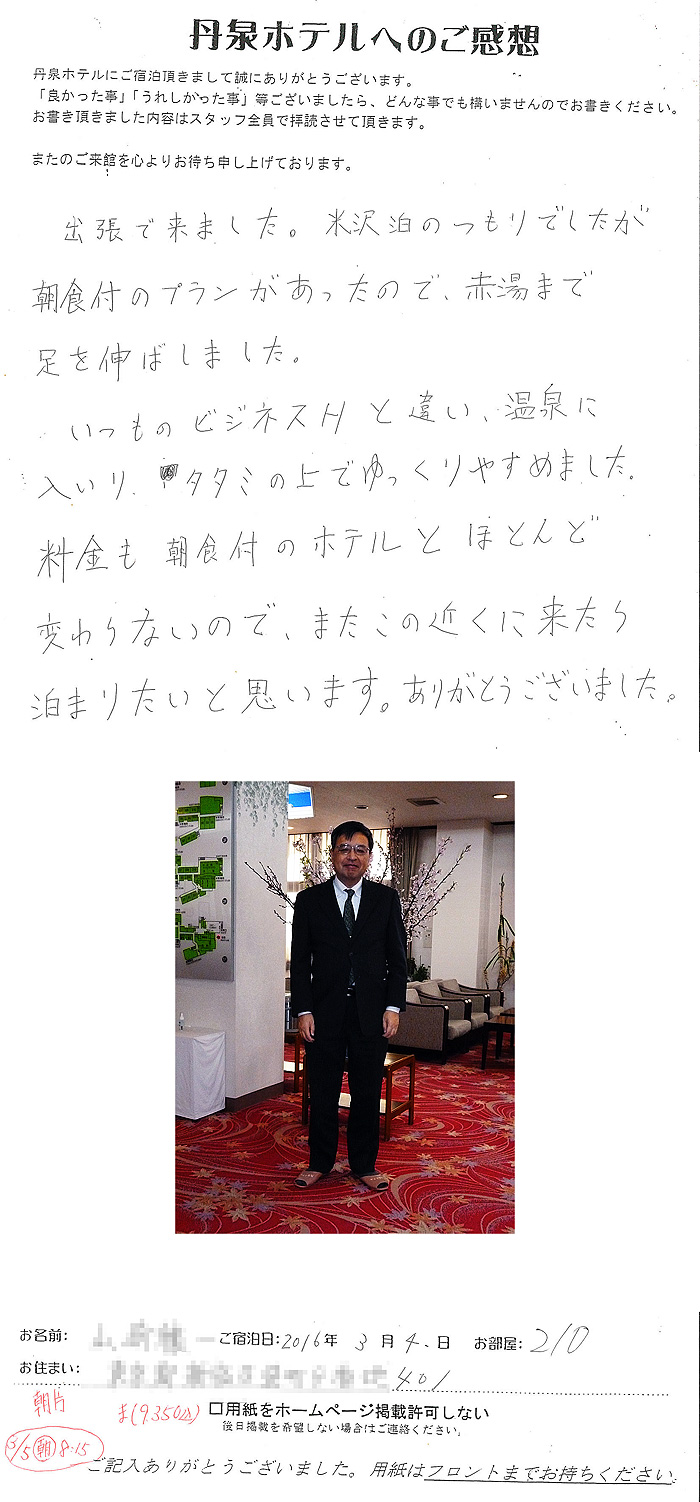 丹泉ホテルへのご感想
丹泉ホテルにご宿泊頂きまして誠にありがとうございます。
「良かった事」「うれしかった事」等ございましたら、どんな事でも構いませんのでお書きください。
お書き頂きました内容はスタッフ全員で拝読させて頂きます。
またのご来館を心よりお待ち申し上げております。
出張で来ました。米沢泊のつもりでしたが
朝食付のプランがあったので、赤湯まで
足を伸ばしました。
いつものビジネスHと違い、温泉に
入いり タタミの上でゆっくりやすめました。
料金も朝食付のホテルとほとんど
変わらないので、またこの近くに来たら
泊まりたいと思います。ありがとうございました。
お名前: ご宿泊日:2016年 3月 4日 お部屋: 210
お住まい: 401
朝片 ま(9,350込) 口用紙をホームページ掲載許可しない
後日掲載を希望しない場合はご連絡ください。
3/5 朝 8:15
ご記入ありがとうございました。用紙はフロントまでお持ちください。